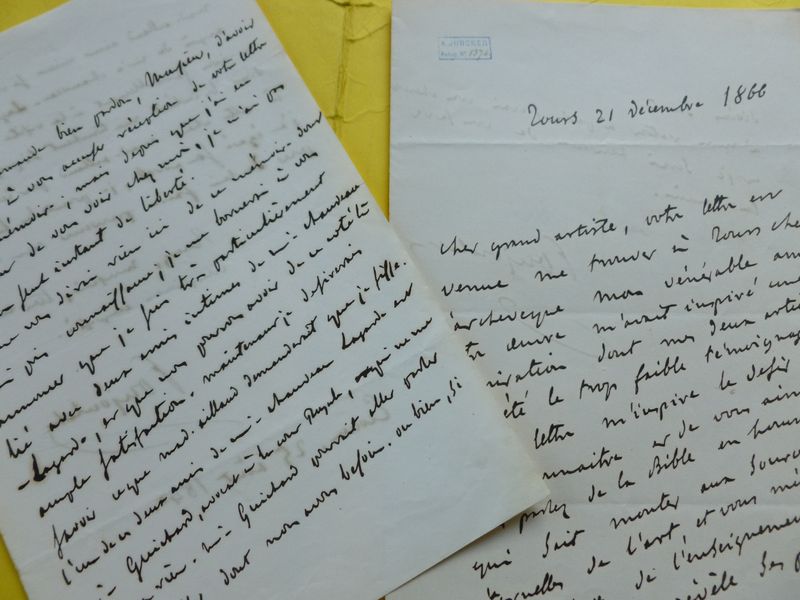 demande bien pardon, Monsieur, d'avoir
à vous accuser réception de votre lettre
mémoire; mais depuis que j'ai eu
de vous voir chez moi, je n'ai pas
seul instant de liberté.
vous dirai rien ici de ce mémoire dont
pris connaissance, je me bornerai à vous
annoncer que je suis très particulièrement
lié avec deux amis intimes de Mr chauveau
-Lagarde, et que nous pouvons avoir de ce coté là
ample satisfaction. maintenant je desirerais
savoir ce que mad. aillaud demanderait que je fisse.
l'un de ces deux amis de Mr chauveau Lagarde est
Mr Guichard, avocat à la cour Royale, qui ne me
rien. Mr Guichard pourrait aller parler
dont nous avons besoin. ou bien, si
A. JUNCKER
1874
Tours 21 décembre 1866
cher grand artiste, votre lettre est
venue me trouver à Tours chez
archeveque mon vénérable ami
œuvre m'avait inspiré une
dont mes deux articles
été le trop faible témoignage
lettre m'inspire le desir
connaitre et de vous aimer
parlez de la Bible en homme
qui sait monter aux sources
de l'art, et vous mé
de l'enseignement
révèle ses